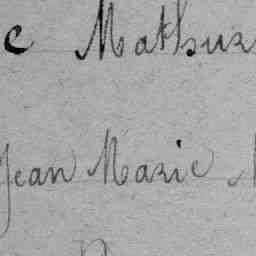 c Mathur
Jean Marie